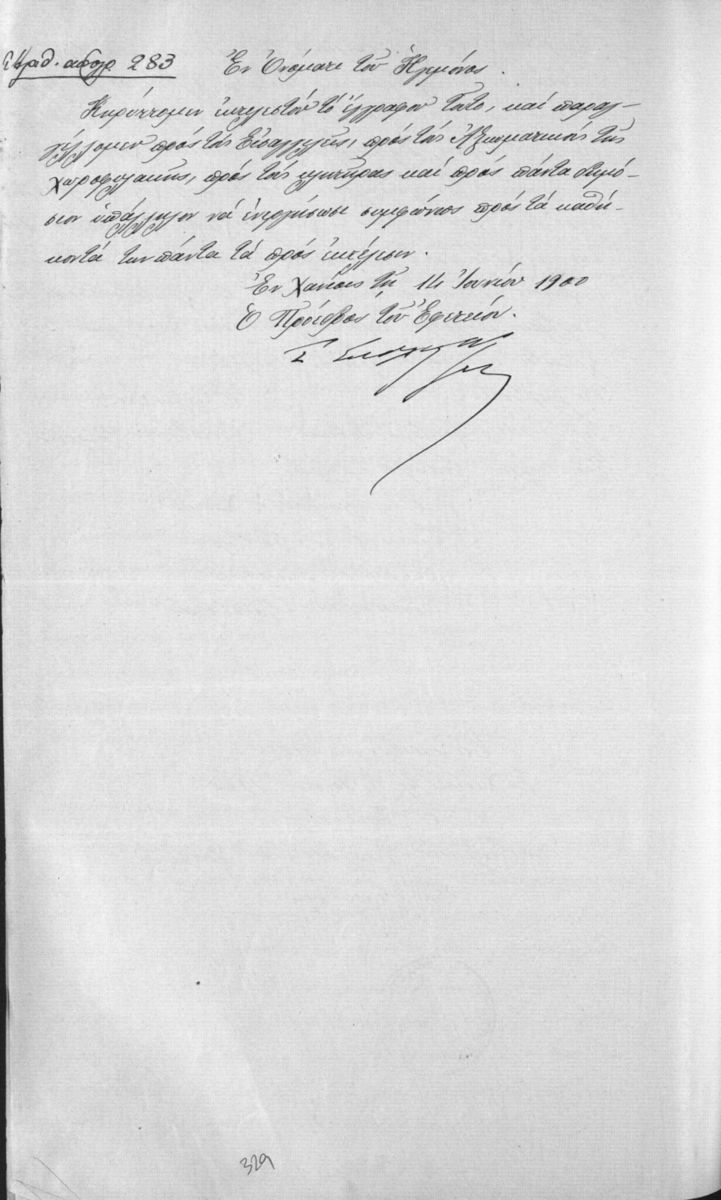 283 Ἐν Ὀνόματι τοῦ Ἡγεμόνος.
Κηρύττομεν ἐκτελεστὸν τὸ ἔγγραφον τοῦτο, καὶ παραγ-
γέλλομεν πρὸς τοὺς Εἰσαγγελεῖς, πρὸς τοὺς Ἀξιωματικοὺς τῆς
χωροφυλακῆς, πρὸς τοὺς κλητῆρας καὶ πρὸς πάντα δημό-
σιον ὑπάλληλον νὰ ἐνεργήσωσι συμφώνως πρὸς τὰ καθή-
κοντά των πάντα τὰ πρὸς ἐκτέλεσιν.
Ἐν Χανίοις τῇ 14 Ἰουνίου 1900
Ὁ Πρόεδρος τῶν Ἐφετῶν.
329